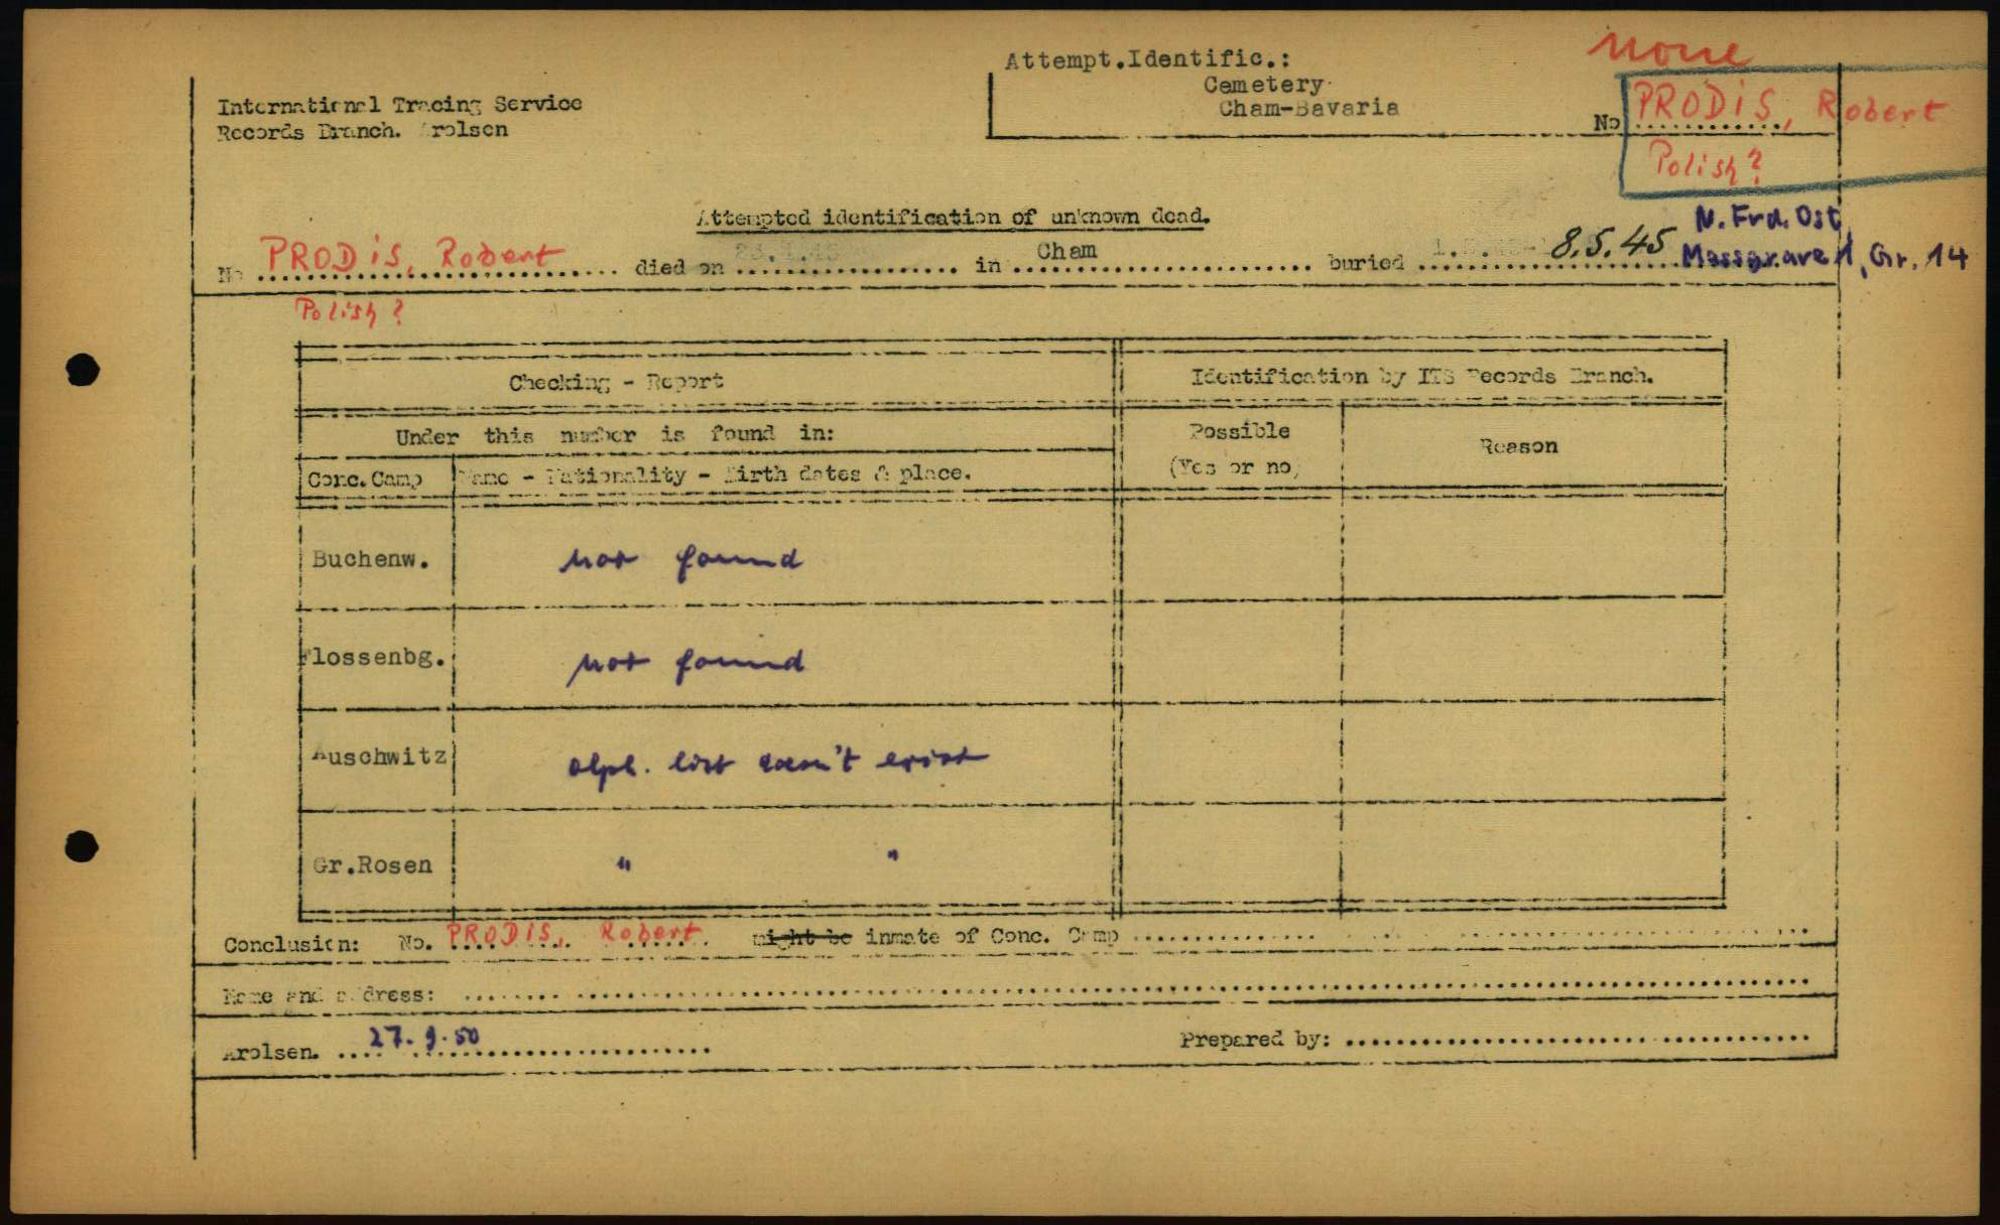 none
Attempt.Identific.:
Cemetery
Cham-Bavaria
International Tracing Service
Records Branch. Arolsen
No PRODIS, Robert
Polish?
Attempted identification of unknown dead.
N. Frd. Ost,
No PRODIS, Robert died on in Cham buried 8.5.45 Massgrave 1, Gr. 14
Polish?
Checking - Report
Identification by ITS Records Branch.
Under this number is found in:
Possible
(Yes or no)
Reason
Conc.Camp Name - Nationality - Birth dates & place.
Buchenw. not found
Flossenbg. not found
Auschwitz alph. list doesn't exist
Gr.Rosen " "
Conclusion: No. PRODIS, Robert. might be inmate of Conc. Camp
Name and address:
Arolsen. 27.9.50
Prepared by: